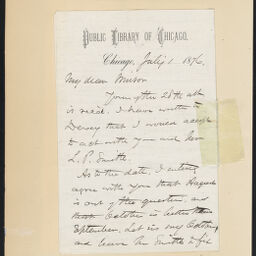 Public Library of Chicago.
Chicago, July 1 1876.
My dear Winsor
Yours of the 28th ult
is rec'd. I have written to
Dewey that I would accept
to act with you and Mr
L. P. Smith.
As to the date, I entirely
agree with you that August
is out of the question, and
that October is better than
September. Let us say October,
and leave Mr Smith to fix